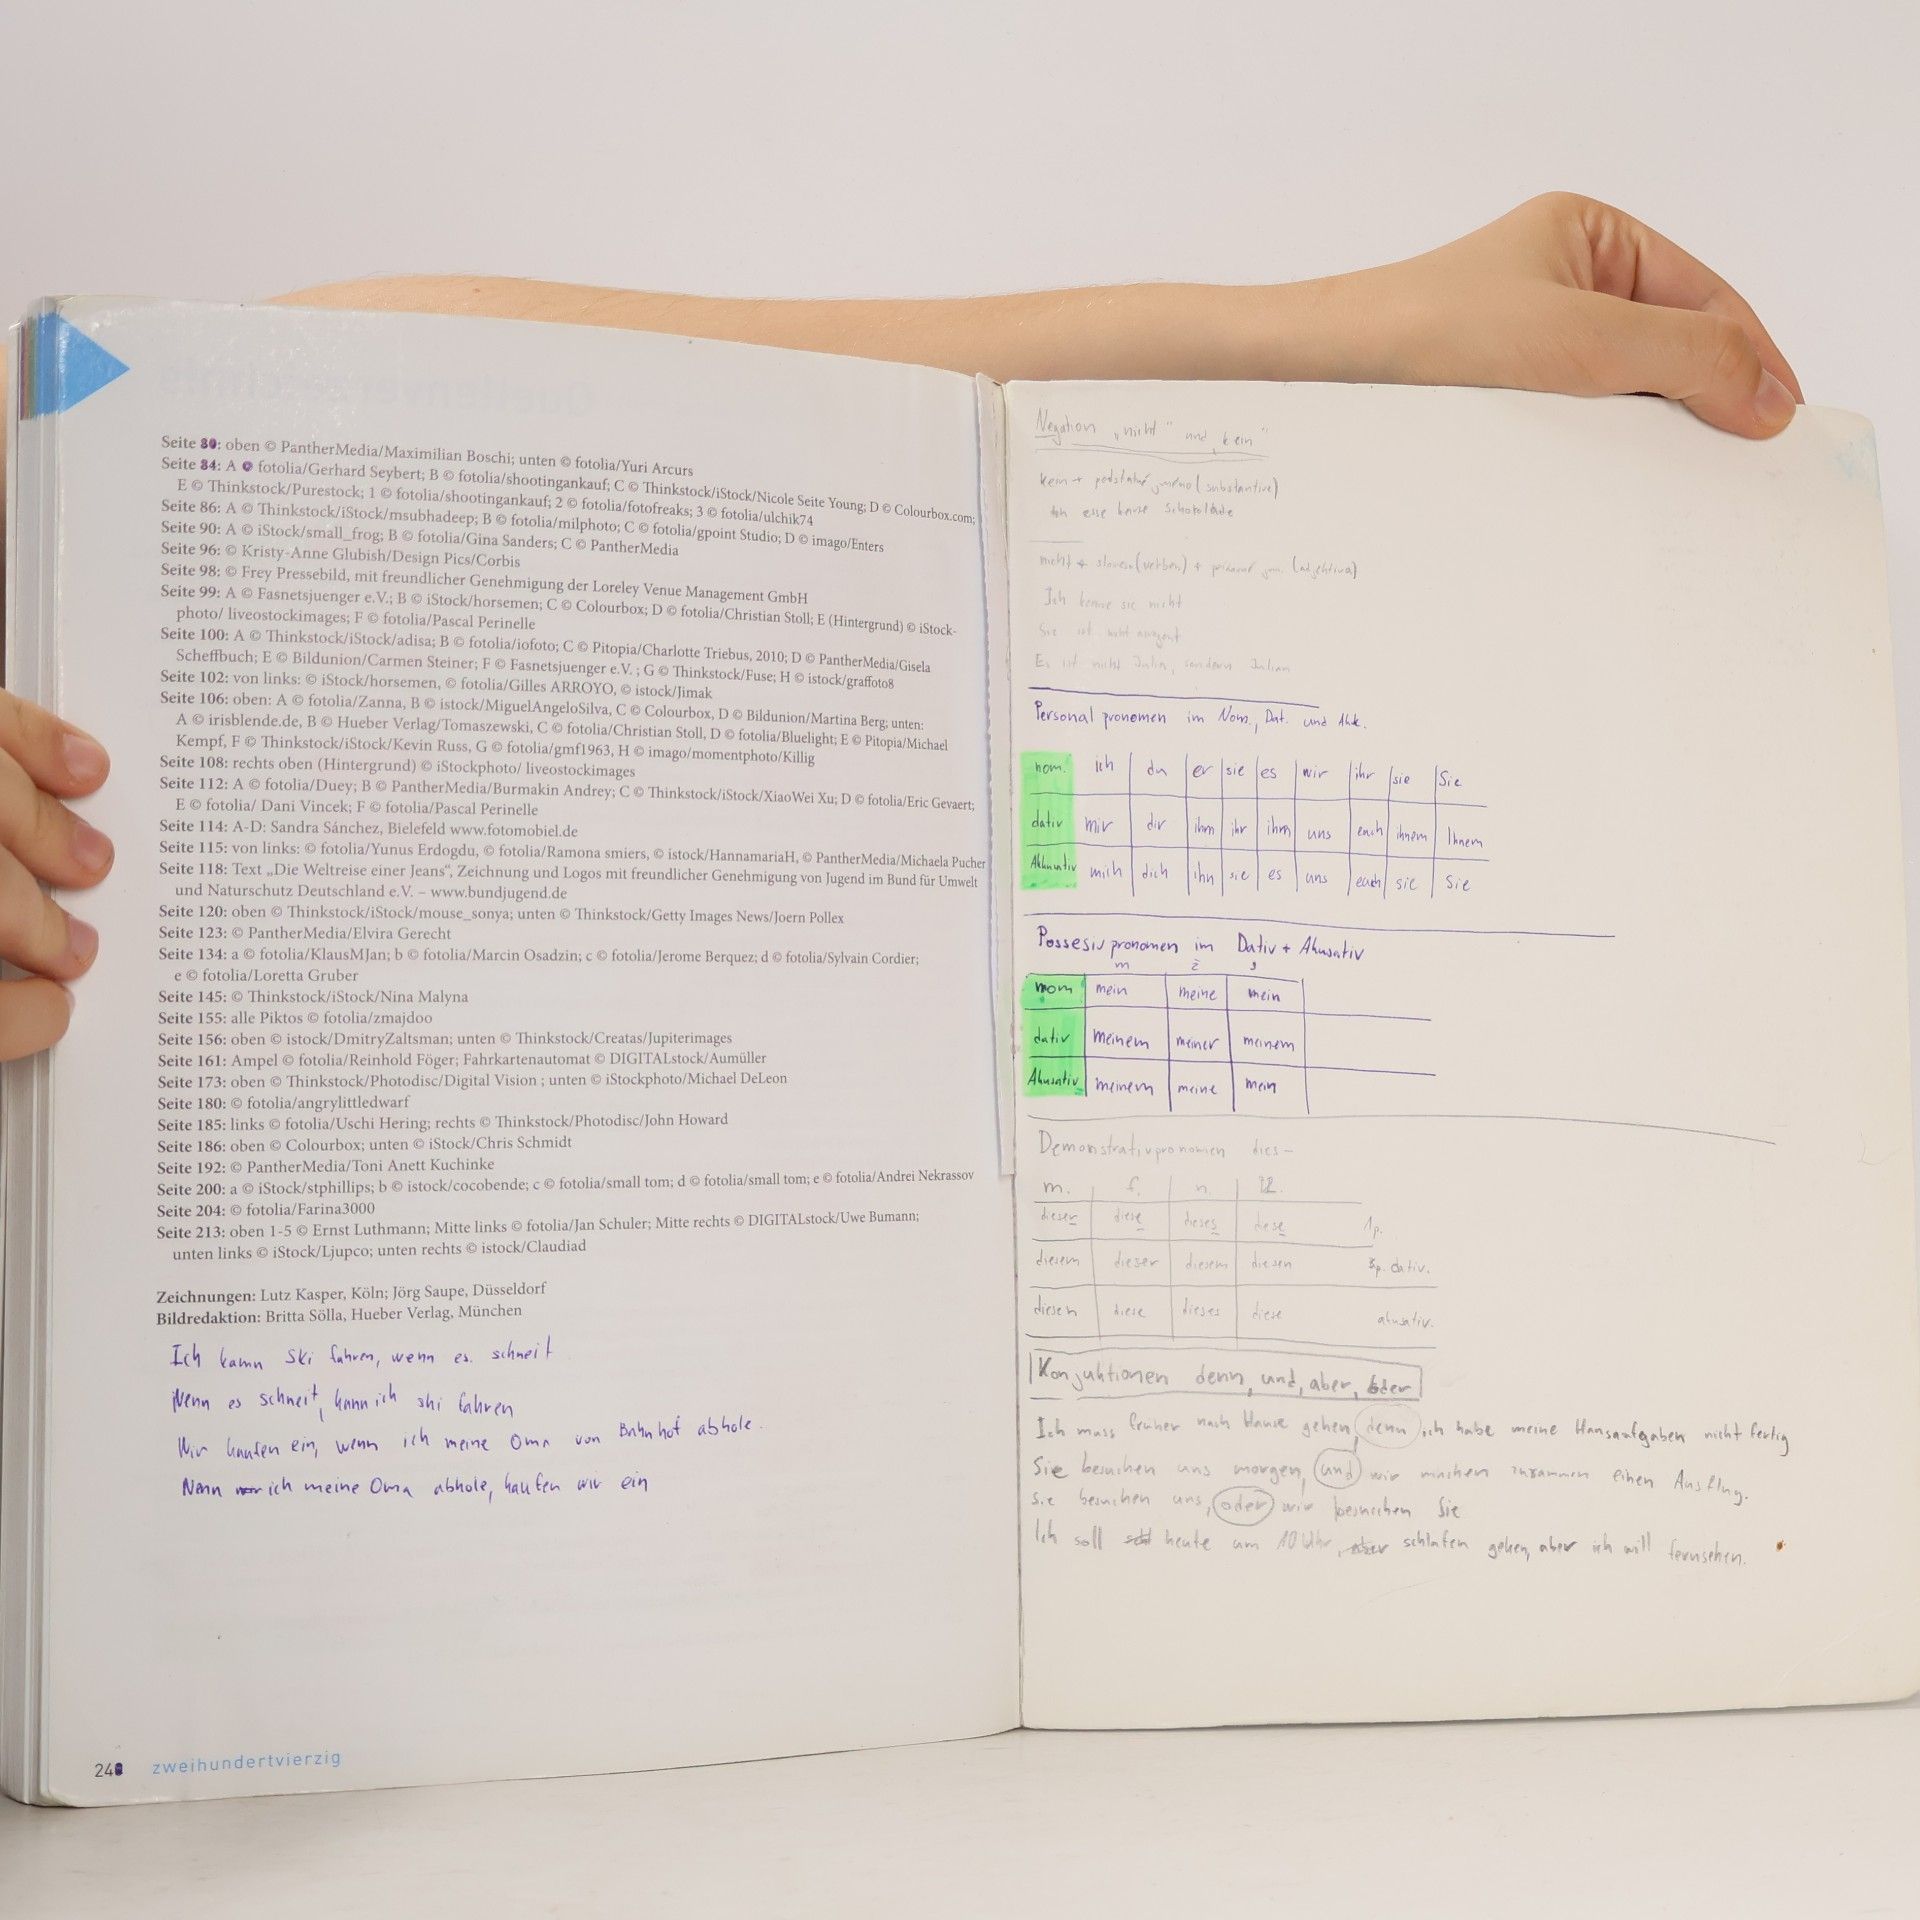 Seite 80: oben © PantherMedia/Maximilian Boschi; unten © fotolia/Yuri Arcurs
Seite 84: A © fotolia/Gerhard Seybert; B © fotolia/shootingankauf; C © Thinkstock/iStock/Nicole Seite Young; D © Colourbox.com;
E © Thinkstock/Purestock; 1 © fotolia/shootingankauf; 2 © fotolia/fotofreaks; 3 © fotolia/ulchik74
Seite 86: A © Thinkstock/iStock/msubhadeep; B © fotolia/milphoto; C © fotolia/gpoint Studio; D © imago/Enters
Seite 90: A © iStock/small_frog; B © fotolia/Gina Sanders; C © PantherMedia
Seite 96: © Kristy-Anne Glubish/Design Pics/Corbis
Seite 98: © Frey Pressebild, mit freundlicher Genehmigung der Loreley Venue Management GmbH
Seite 99: A © Fasnetsjuenger e.V.; B © iStock/horsemen; C © Colourbox; D © fotolia/Christian Stoll; E (Hintergrund) © iStock-
photo/ liveostockimages; F © fotolia/Pascal Perinelle
Seite 100: A © Thinkstock/iStock/adisa; B © fotolia/iofoto; C © Pitopia/Charlotte Triebus, 2010; D © PantherMedia/Gisela
Scheffbuch; E © Bildunion/Carmen Steiner; F © Fasnetsjuenger e.V. ; G © Thinkstock/Fuse; H © istock/graffoto8
Seite 102: von links: © iStock/horsemen, © fotolia/Gilles ARROYO, © istock/Jimak
Seite 106: oben: A © fotolia/Zanna, B © istock/MiguelAngeloSilva, C © Colourbox, D © Bildunion/Martina Berg; unten:
A © irisblende.de, B © Hueber Verlag/Tomaszewski, C © fotolia/Christian Stoll, D © fotolia/Bluelight; E © Pitopia/Michael
Kempf, F © Thinkstock/iStock/Kevin Russ, G © fotolia/gmf1963, H © imago/momentphoto/Killig
Seite 108: rechts oben (Hintergrund) © iStockphoto/ liveostockimages
Seite 112: A © fotolia/Duey; B © PantherMedia/Burmakin Andrey; C © Thinkstock/iStock/XiaoWei Xu; D © fotolia/Eric Gevaert;
E © fotolia/ Dani Vincek; F © fotolia/Pascal Perinelle
Seite 114: A-D: Sandra Sánchez, Bielefeld www.fotomobiel.de
Seite 115: von links: © fotolia/Yunus Erdogdu, © fotolia/Ramona smiers, © istock/HannamariaH, © PantherMedia/Michaela Pucher
Seite 118: Text „Die Weltreise einer Jeans“, Zeichnung und Logos mit freundlicher Genehmigung von Jugend im Bund für Umwelt
und Naturschutz Deutschland e.V. – www.bundjugend.de
Seite 120: oben © Thinkstock/iStock/mouse_sonya; unten © Thinkstock/Getty Images News/Joern Pollex
Seite 123: © PantherMedia/Elvira Gerecht
Seite 134: a © fotolia/KlausMJan; b © fotolia/Marcin Osadzin; c © fotolia/Jerome Berquez; d © fotolia/Sylvain Cordier;
e © fotolia/Loretta Gruber
Seite 145: © Thinkstock/iStock/Nina Malyna
Seite 155: alle Piktos © fotolia/zmajdoo
Seite 156: oben © istock/DmitryZaltsman; unten © Thinkstock/Creatas/Jupiterimages
Seite 161: Ampel © fotolia/Reinhold Föger; Fahrkartenautomat © DIGITALstock/Aumüller
Seite 173: oben © Thinkstock/Photodisc/Digital Vision ; unten © iStockphoto/Michael DeLeon
Seite 180: © fotolia/angrylittledwarf
Seite 185: links © fotolia/Uschi Hering; rechts © Thinkstock/Photodisc/John Howard
Seite 186: oben © Colourbox; unten © iStock/Chris Schmidt
Seite 192: © PantherMedia/Toni Anett Kuchinke
Seite 200: a © iStock/stphillips; b © istock/cocobende; c © fotolia/small tom; d © fotolia/small tom; e © fotolia/Andrei Nekrassov
Seite 204: © fotolia/Farina3000
Seite 213: oben 1-5 © Ernst Luthmann; Mitte links © fotolia/Jan Schuler; Mitte rechts © DIGITALstock/Uwe Bumann;
unten links © iStock/Ljupco; unten rechts © istock/Claudiad
Zeichnungen: Lutz Kasper, Köln; Jörg Saupe, Düsseldorf
Bildredaktion: Britta Sölla, Hueber Verlag, München
Ich kann Ski fahren, wenn es schneit
Wenn es schneit, kann ich ski fahren
Wir kaufen ein, wenn ich meine Oma von Bahnhof abhole.
Wenn ich meine Oma abhole, kaufen wir ein
240 zweihundertvierzig
Negation „nicht" und kein"
kein + podstatné jméno (substantive)
Ich esse keine Schokolade
nicht + sloveso (verben) + (adjektiva)
Ich kenne sie nicht
Sie ist nicht
Es ist nicht Julia, sondern Julian
Personal pronomen im Nom., Dat. und Akk.
nom. ich du er sie es wir ihr sie Sie
dativ mir dir ihm ihr ihm uns euch ihnem Ihnem
Akkusativ mich dich ihn sie es uns euch sie Sie
Possesiv pronomen im Dativ + Akusativ
m ž s
nom mein meine mein
dativ meinem meiner meinem
Akusativ meinem meine mein
Demonstrativpronomen dies-
m. f. n.
dieser diese dieses diese 1p.
diesem dieser diesem diesen 3p. dativ.
diesen diese dieses diese akusativ.
Konjuktionen denn, und, aber, oder
Ich muss früher nach Hause gehen, denn ich habe meine Hausaufgaben nicht fertig
Sie besuchen uns morgen, und wir machen zusammen einen Ausflug.
Sie besuchen uns, oder wir besuchen Sie
Ich soll heute um 10 Uhr, schlafen gehen, aber ich will fernsehen.